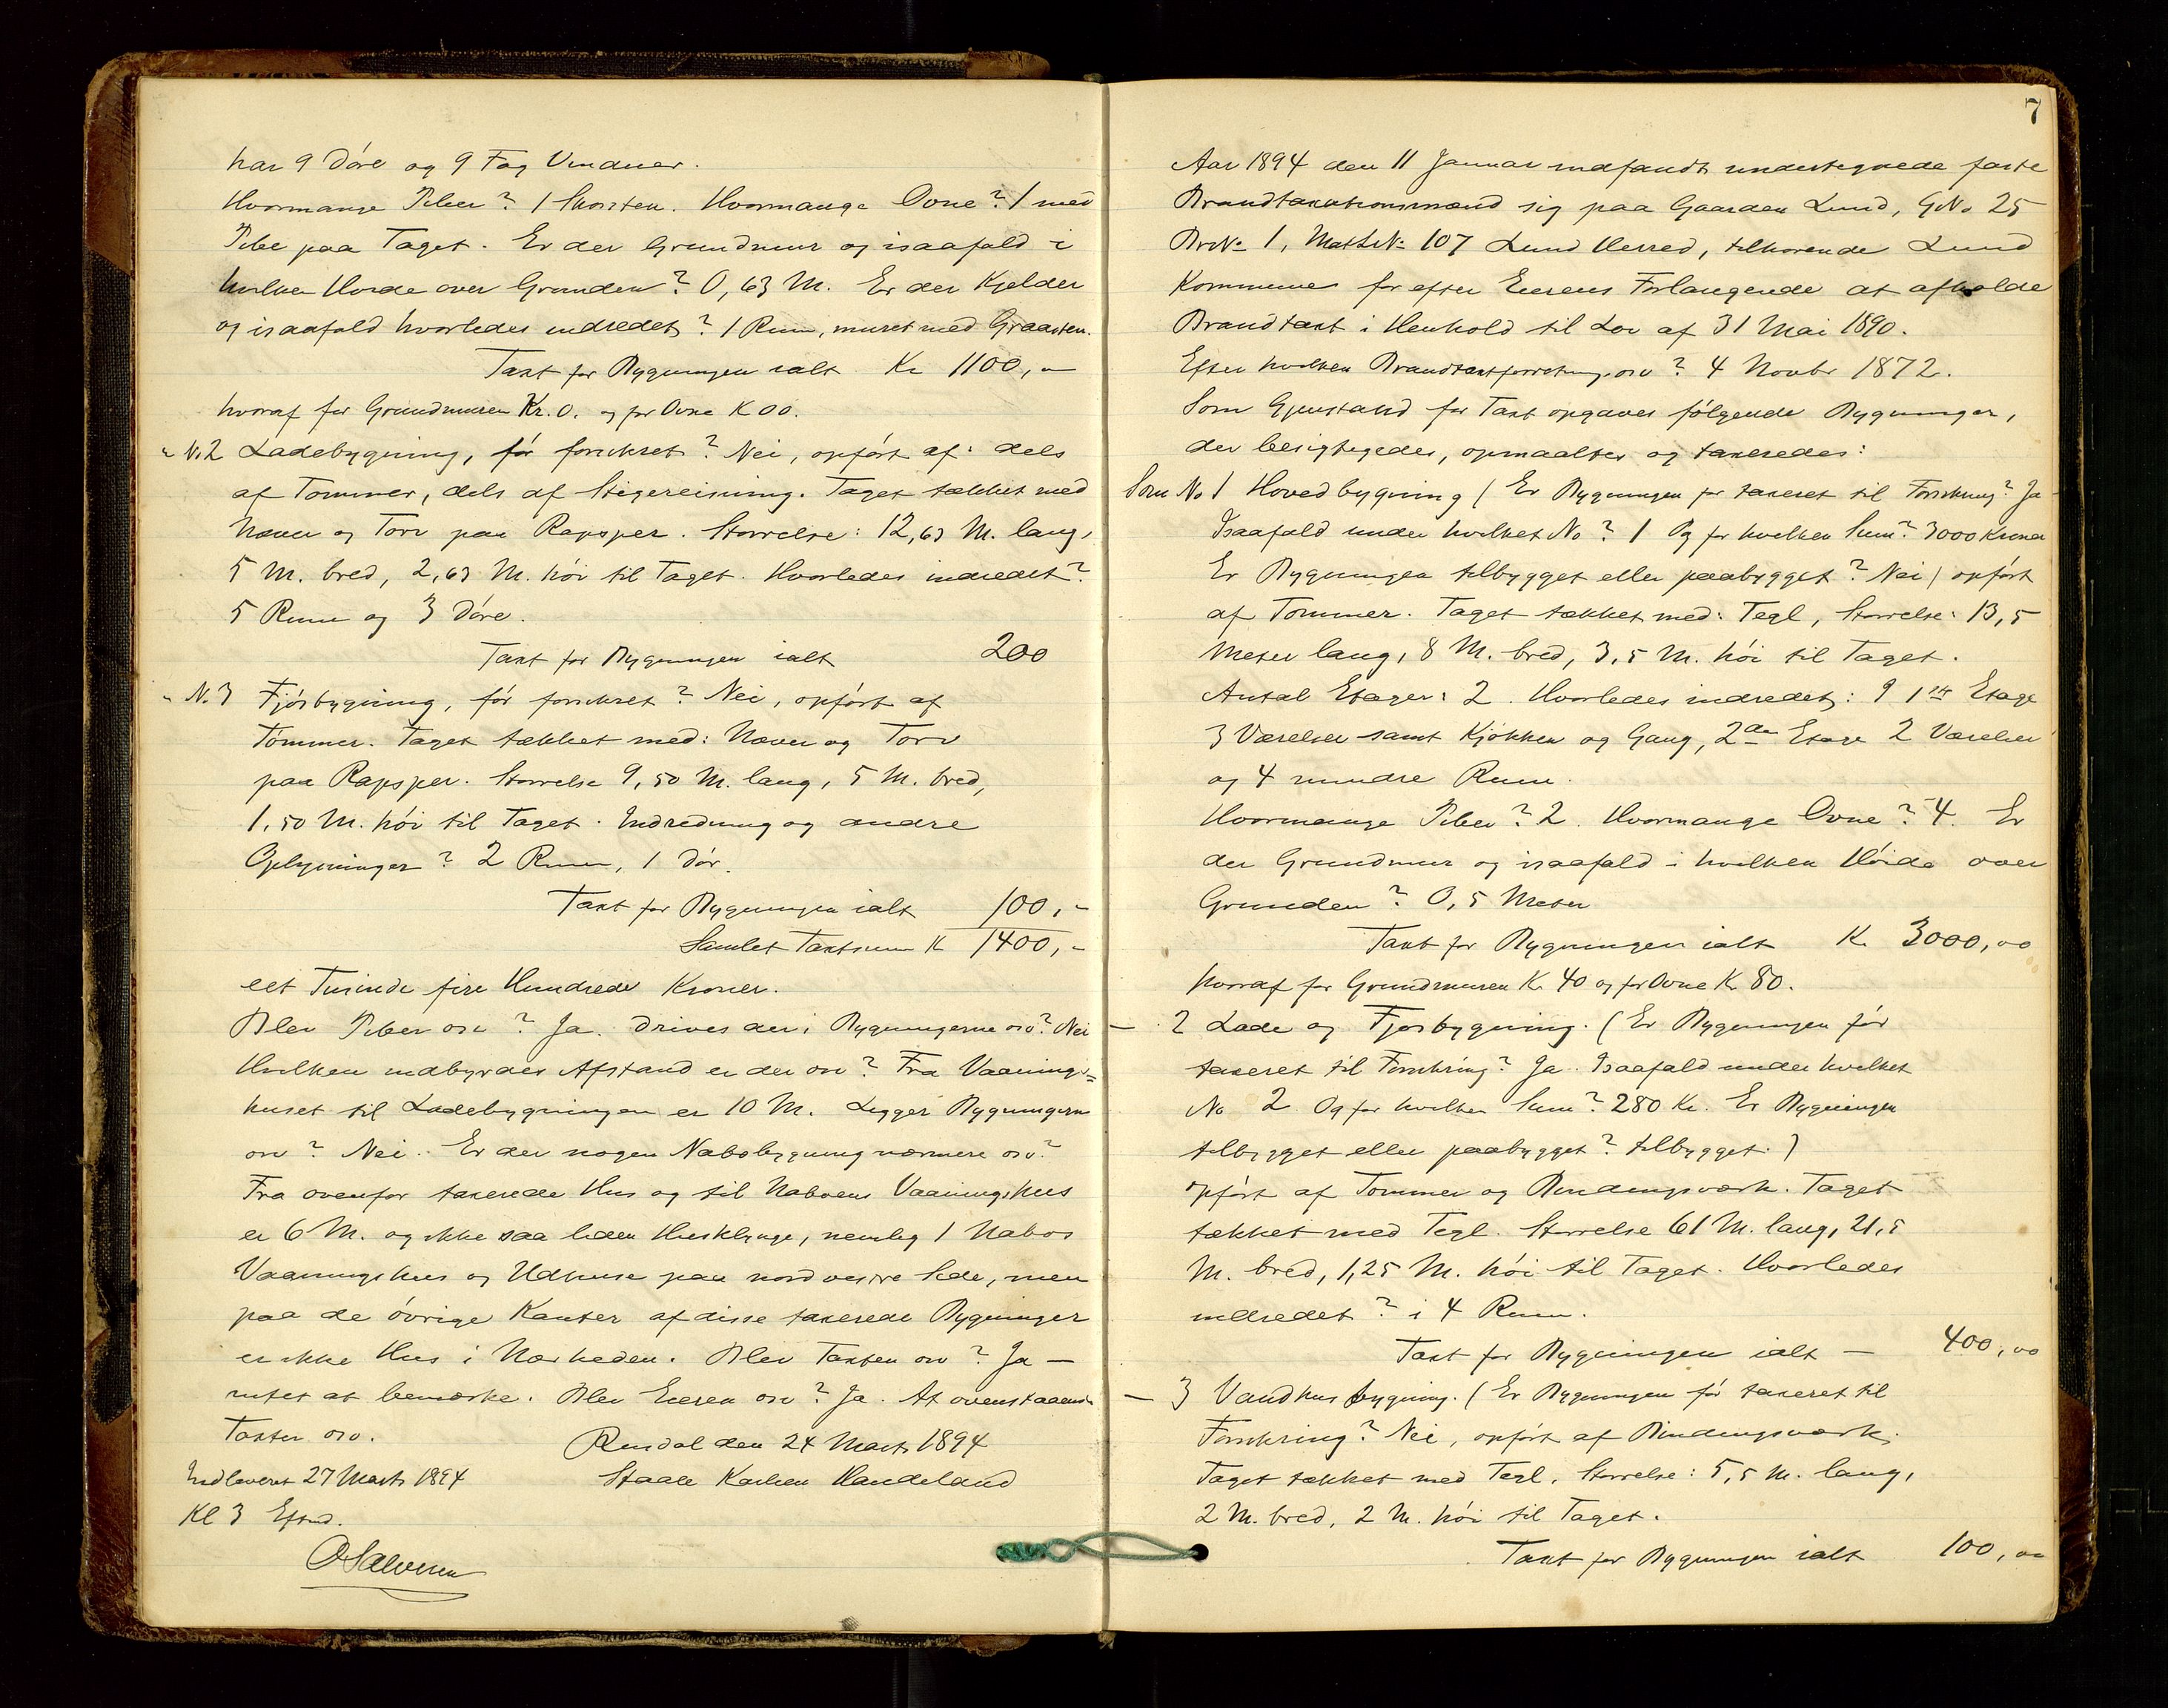 har 9 Döre og 9 Fag Vinduer.
Hvormange Piber? 1 Skorsten. Hvormange Ovne? 1 med
Pibe paa Taget. Er der Grundmur og isaafald i
hvilken Høide over Grunden? 0,63 M. Er der Kjelder
og isaafald hvorledes indredet? 1 Rum, muret med Graasten.
Taxt for Bygningen ialt Kr 1100,-
hvoraf for Grundmuren Kr. 0. og for Ovne K 00.
" N.2 Ladebygning, før forsikret? Nei, opført af: dels
af Tømmer, dels af Stigereisning. Taget tækket med
Næver og Torv paa Rapsper. Størrelse: 12,63 M. lang,
5 M. bred, 2,63 M. höi til Taget. Hvorledes indredet?
5 Rum og 3 Döre.
Taxt for Bygningen ialt 200
" N.3 Fjösbygning, før forsikret? Nei, opført af
Tömmer. Taget tækket med: Næver og Torv
paa Rapsper. Størrelse 9,50 M. lang, 5 M. bred,
1,50 M. höi til Taget. Indredning og andre
Oplysninger? 2 Rum, 1 Dör.
Taxt for Bygningen ialt 100,-
Samlet Taxtsum K 1400,-
eet Tusinde fire Hundrede Kroner.
Blev Piber osv? Ja. Drives der i Bygningerne osv? Nei
Hvilken indbyrdes Afstand er der osv? Fra Vaanings=
huset til Ladebygningen er 10 M. Ligger Bygningern
osv? Nei. Er der nogen Nabobygning nærmere osv?
Fra ovenfor taxerede Hus og til Naboens Vaaningshus
er 6 M. og ikke saa liden Husklynge, nemlig 1 Nabos
Vaaningshus og Udhuse paa nordvestre Side, men
paa de övrige Kanter af disse taxerede Bygninger
er ikke Hus i Nærheden. Blev Taxten osv? Ja —
intet at bemærke. Blev Eieren osv? Ja. At ovenstaaende
Taxter osv.
Rusdal den 24 Marts 1894
Indleveret 27 Marts 1894
Staale Karlsen Handeland
Kl 3 Eftmd.
O Salvesen
7
Aar 1894 den 11 Januar indfandt undertegnede faste
Brandtaxationsmænd sig paa Gaarden Lund, GNo 25
BrNo 1, MattrNo 107 Lund Herred, tilhørende Lund
Kommune for efter Eierens Forlangende at afholde
Brandtaxt i Henhold til Lov af 31 Mai 1890.
Efter hvilken Brandtaxtforretning osv? 4 Novbr 1872.
Som Gjenstand for Taxt opgaves følgende Bygninger,
der besigtigedes, opmaaltes og taxeredes:
Som No 1 Hovedbygning (Er Bygningen før taxeret til Forsikring? Ja
Isaafald under hvilket No? 1 Og for hvilken Sum? 3000 Kroner
Er Bygningen tilbygget eller paabygget? Nei) opført
af Tømmer. Taget tækket med: Tegl, Størrelse: 13,5
Meter lang, 8 M. bred, 3,5 M. höi til Taget.
Antal Etager: 2. Hvorledes indredet: I 1ste Etage
3 Værelser samt Kjøkken og Gang, 2den Etage 2 Værelser
og 4 mindre Rum.
Hvormange Piber? 2. Hvormange Ovne? 4. Er
der Grundmur og isaafald i hvilken Höide over
Grunden? 0,5 Meter
Taxt for Bygningen ialt K. 3000,00
hvoraf for Grundmuren Kr 40 og for Ovne Kr 80.
— 2 Lade og Fjøsbygning. (Er Bygningen før
taxeret til Forsikring? Ja. Isaafald under hvilket
No 2. Og for hvilken Sum? 280 Kr. Er Bygningen
tilbygget eller paabygget? tilbygget.)
opført af Tømmer og Bindingsværk. Taget
tækket med Tegl. Størrelse 61 M. lang, 21,5
M. bred, 1,25 M. höi til Taget. Hvorledes
indredet? i 4 Rum.
Taxt for Bygningen ialt — 400,00
— 3 Vandhusbygning. (Er Bygningen før taxeret til
Forsikring? Nei, opført af Bindingsværk.
Taget tækket med Tegl, Størrelse: 5,5 M. lang,
2 M. bred, 2 M. höi til Taget.
Taxt for Bygningen ialt 100,00